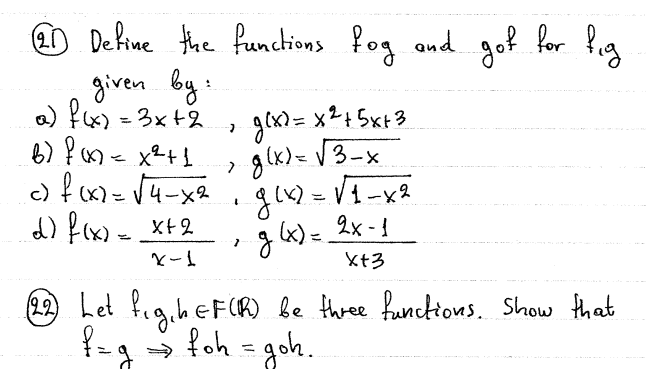 (21) Define the functions fog and gof for f,g
given by:
a) f(x) = 3x+2 , g(x) = x²+5x+3
b) f(x) = x²+1 , g(x) = √(3-x)
c) f(x) = √(4-x²) , g(x) = √(1-x²)
d) f(x) = (x+2)/(x-1) , g(x) = (2x-1)/(x+3)
(22) Let f,g,h ∈ F(ℝ) be three functions. Show that
f=g ⇒ foh = goh.